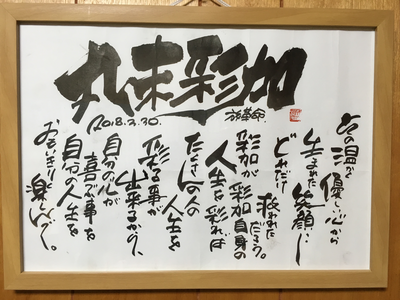 丸末彩加
2018.3.30.
その温
優しい心から
生まれた笑顔に
どれだけ
救われただろう。
彩加が彩加自身の
人生を彩れば
たくさんの人の
人生を
彩る事が
出来るから、
自分の心が
喜ぶ事を
自分の人生を
おもいきり楽しんで。